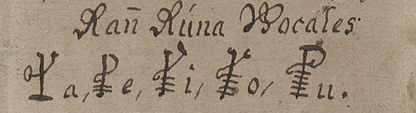 Rañ Rúna Vocales:
a, e, i, o, u.